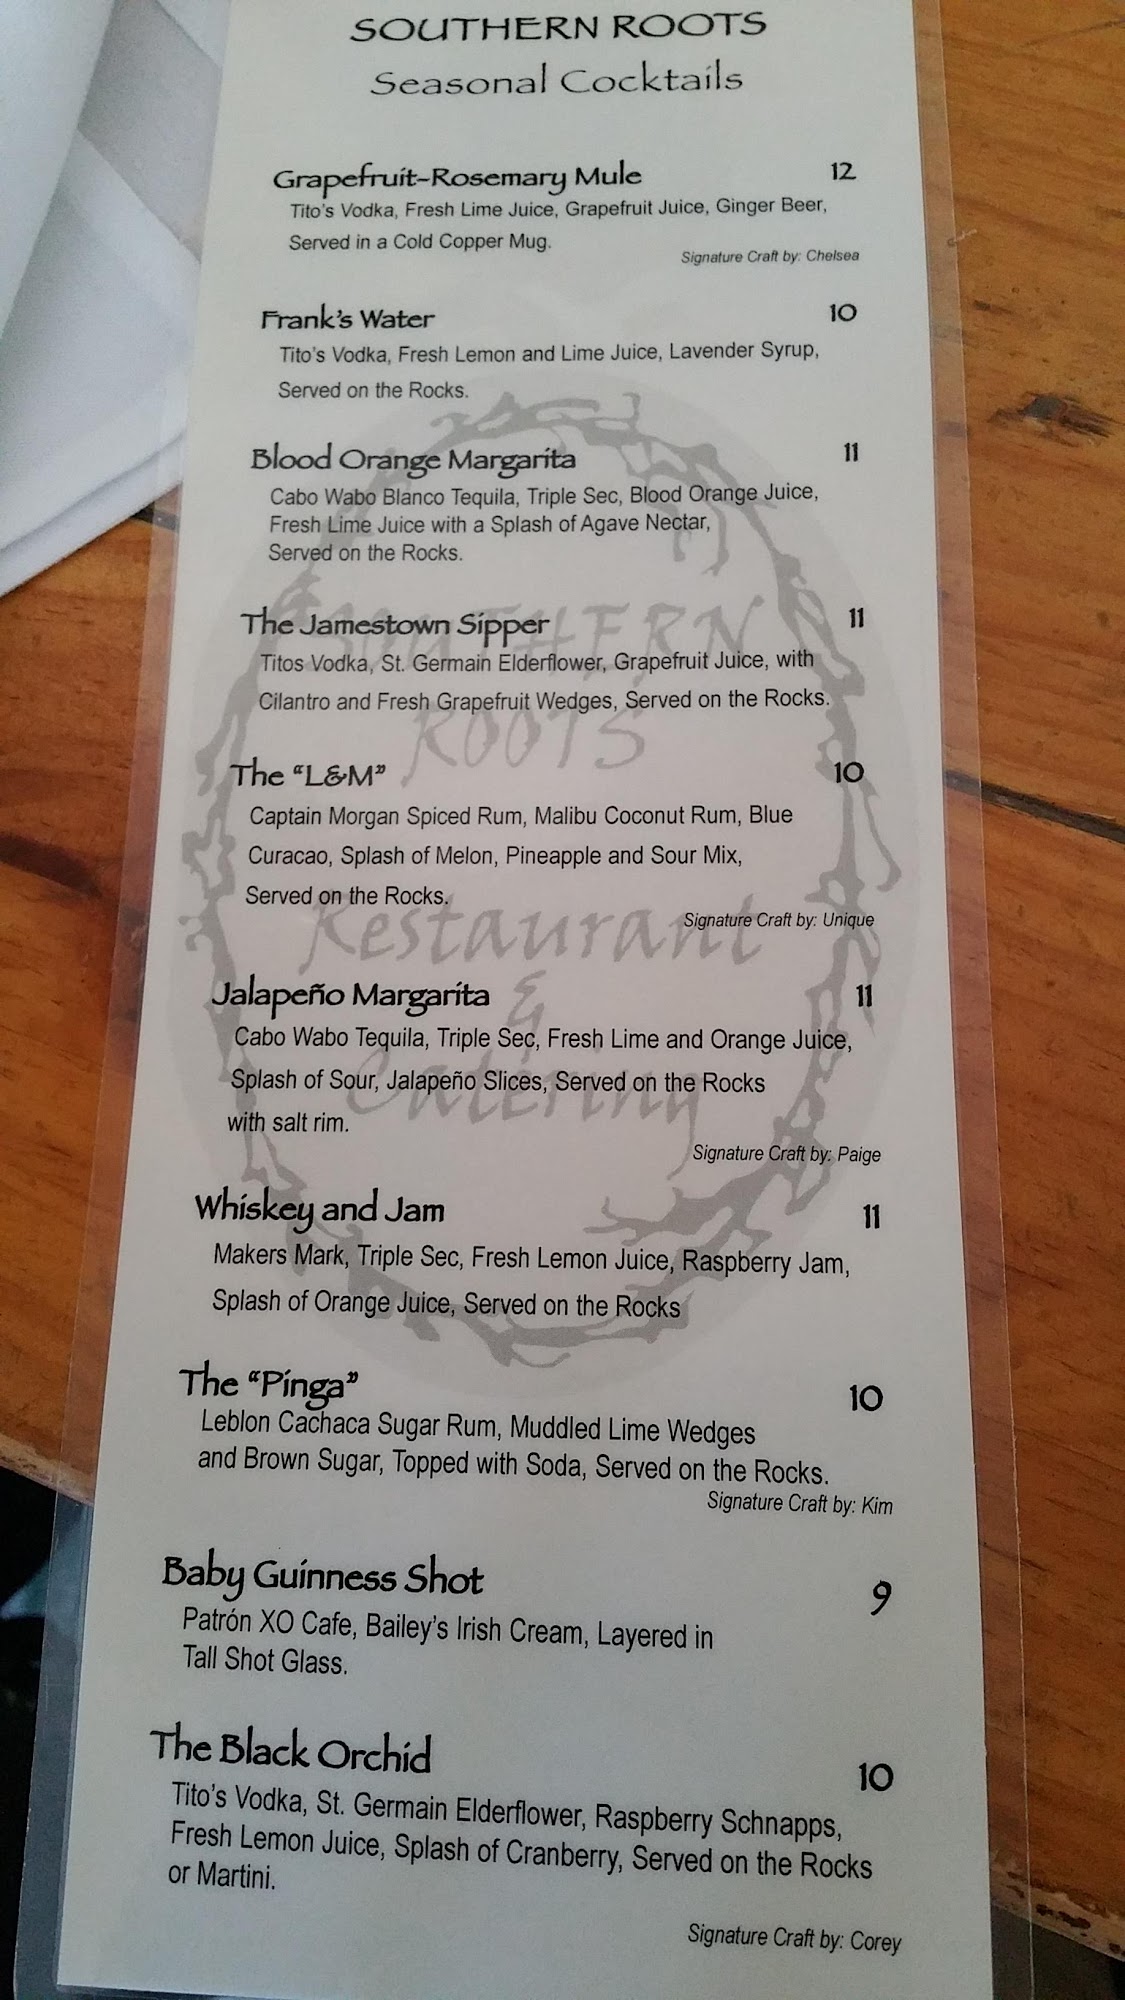 SOUTHERN ROOTS
Seasonal Cocktails
Grapefruit-Rosemary Mule 12
Tito's Vodka, Fresh Lime Juice, Grapefruit Juice, Ginger Beer,
Served in a Cold Copper Mug.
Signature Craft by: Chelsea
Frank's Water 10
Tito's Vodka, Fresh Lemon and Lime Juice, Lavender Syrup,
Served on the Rocks.
Blood Orange Margarita 11
Cabo Wabo Blanco Tequila, Triple Sec, Blood Orange Juice,
Fresh Lime Juice with a Splash of Agave Nectar,
Served on the Rocks.
The Jamestown Sipper 11
Titos Vodka, St. Germain Elderflower, Grapefruit Juice, with
Cilantro and Fresh Grapefruit Wedges, Served on the Rocks.
The “L&M” 10
Captain Morgan Spiced Rum, Malibu Coconut Rum, Blue
Curacao, Splash of Melon, Pineapple and Sour Mix,
Served on the Rocks.
Signature Craft by: Unique
Jalapeño Margarita 11
Cabo Wabo Tequila, Triple Sec, Fresh Lime and Orange Juice,
Splash of Sour, Jalapeño Slices, Served on the Rocks
with salt rim.
Signature Craft by: Paige
Whiskey and Jam 11
Makers Mark, Triple Sec, Fresh Lemon Juice, Raspberry Jam,
Splash of Orange Juice, Served on the Rocks
The “Pinga” 10
Leblon Cachaca Sugar Rum, Muddled Lime Wedges
and Brown Sugar, Topped with Soda, Served on the Rocks.
Signature Craft by: Kim
Baby Guinness Shot 9
Patrón XO Cafe, Bailey's Irish Cream, Layered in
Tall Shot Glass.
The Black Orchid 10
Tito's Vodka, St. Germain Elderflower, Raspberry Schnapps,
Fresh Lemon Juice, Splash of Cranberry, Served on the Rocks
or Martini.
Signature Craft by: Corey
SOUTHERN
ROOTS
Restaurant
&
Catering